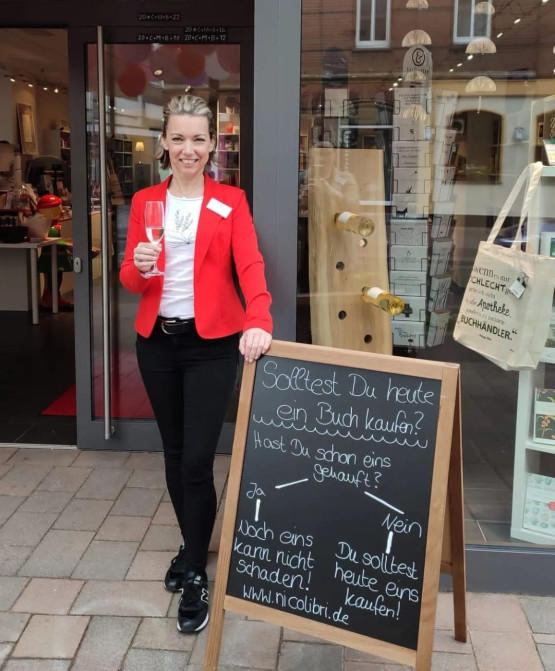 20*C+M+B+22
20*C+M+B+16
20*C+M+B+12
Solltest Du heute
ein Buch kaufen?
Hast Du schon eins
gekauft?
Ja
Nein
Noch eins
kann nicht
schaden!
Du solltest
heute eins
kaufen!
www.nicolibri.de
wenn es mir
SCHLECHT
Apotheke
BUCHHÄNDLER."